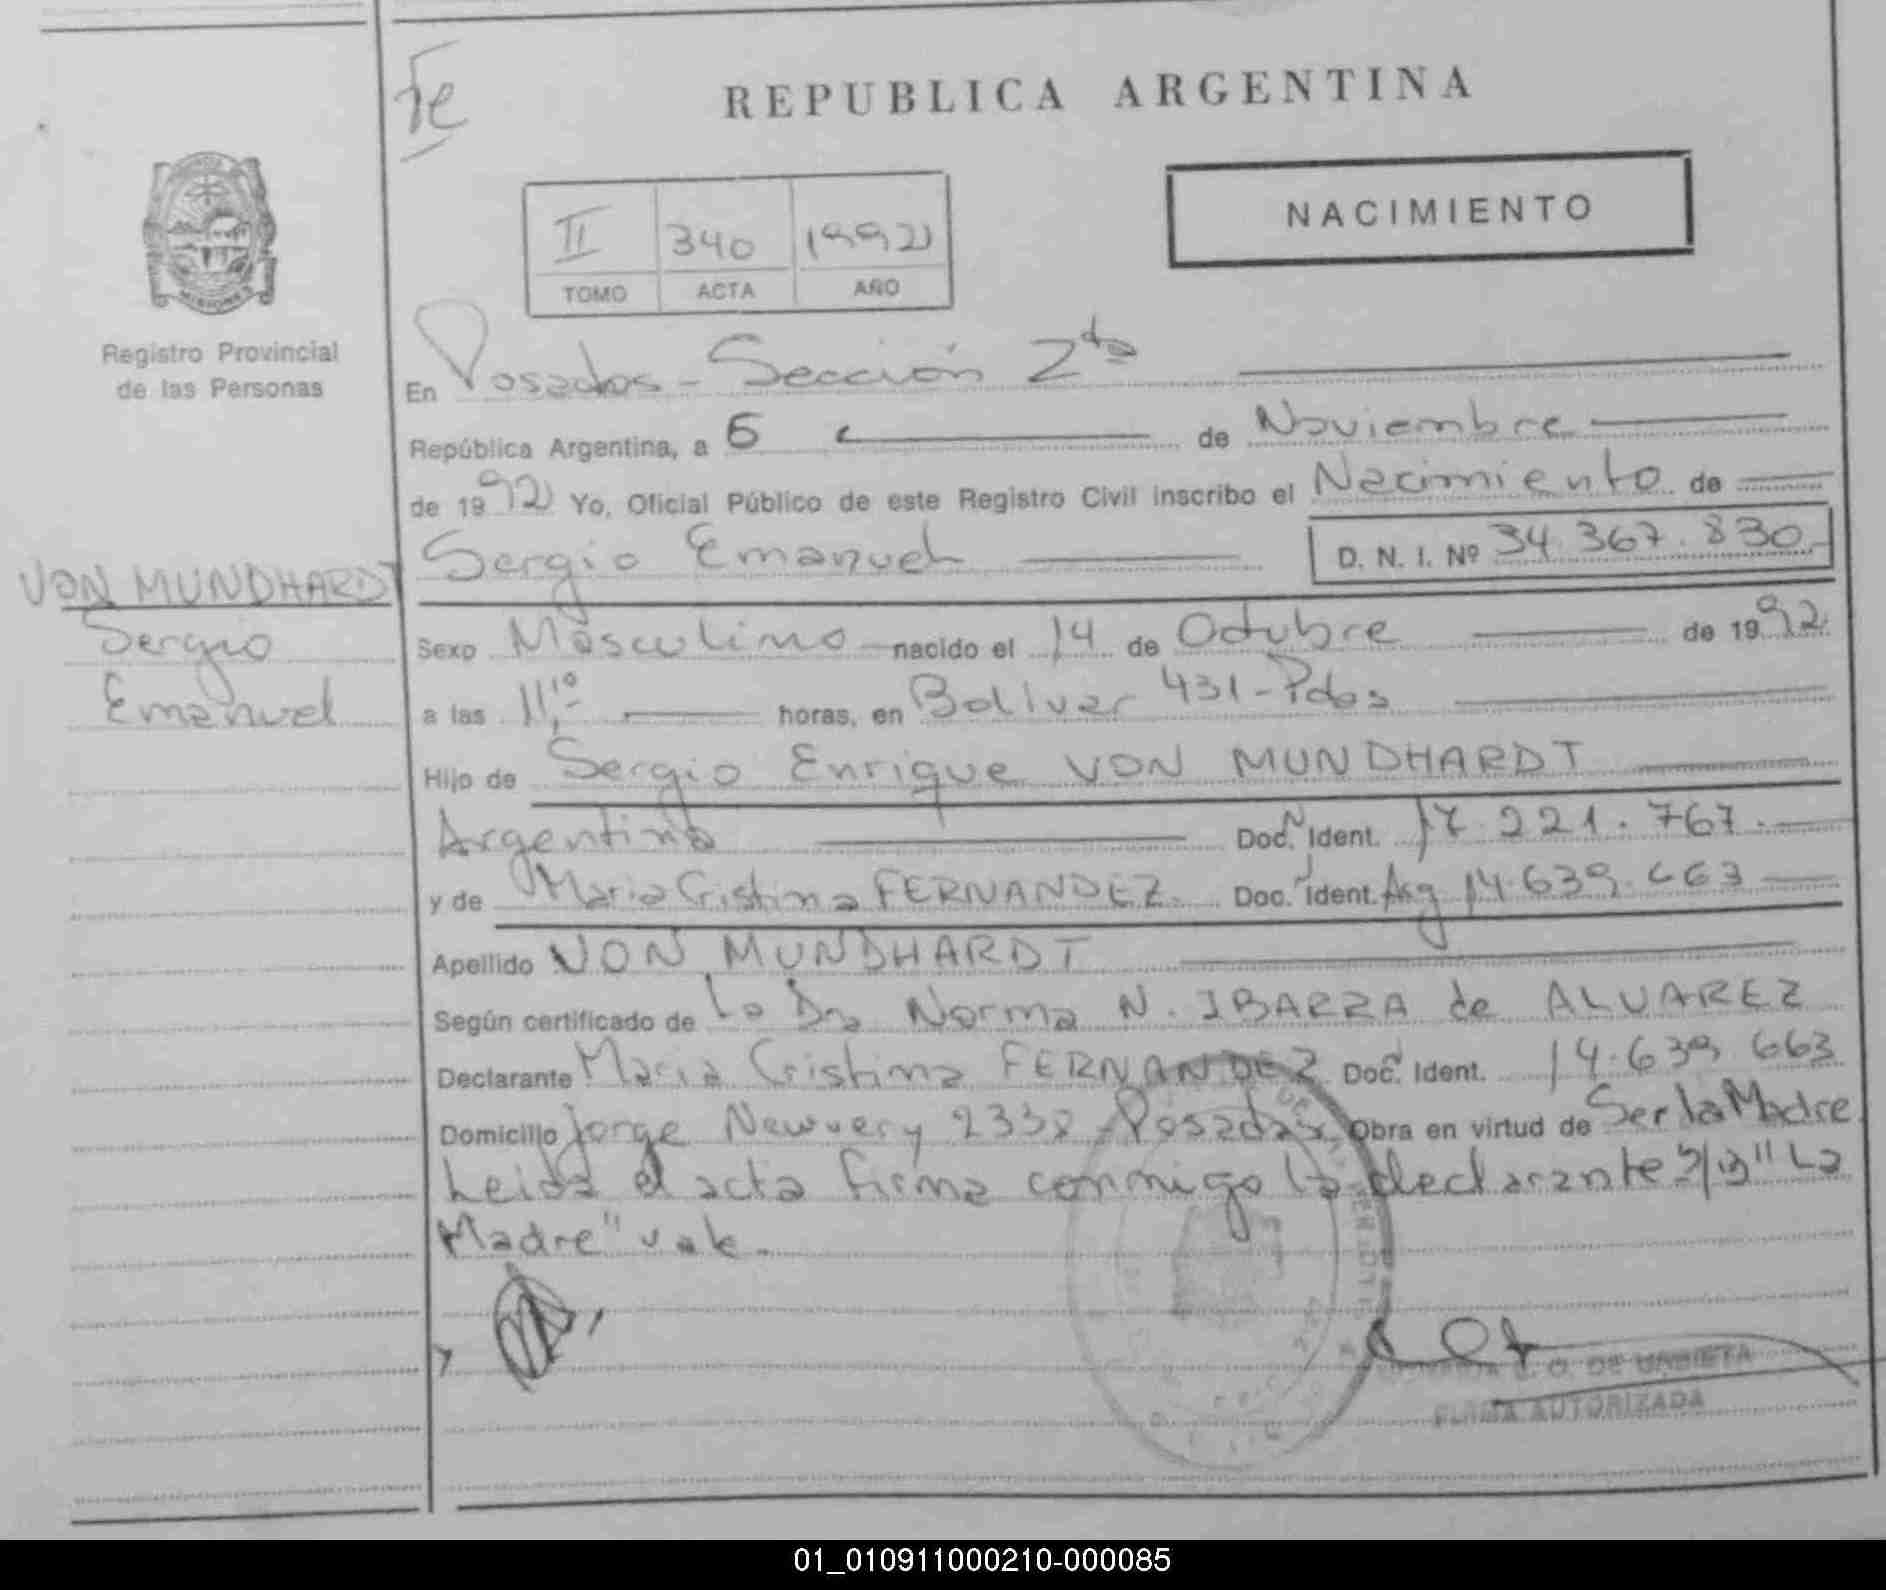 Fe
REPUBLICA ARGENTINA
NACIMIENTO
II 340 1992
TOMO ACTA AÑO
MISIONES
Registro Provincial
de las Personas
VON MUNDHARDT
Sergio
Emanuel
En Posadas - Sección 2da
República Argentina, a 6 de Noviembre
de 1992 Yo, Oficial Público de este Registro Civil inscribo el Nacimiento de
Sergio Emanuel D. N. I. Nº 34.367.830.-
Sexo Masculino nacido el 14 de Octubre de 1992
a las 11,10 horas, en Bolivar 431 - Pdas
Hijo de Sergio Enrique VON MUNDHARDT
Argentino Doc. N Ident. 17.221.767.-
y de Maria Cristina FERNANDEZ. Doc. Ident. Arg 14.639.663
Apellido VON MUNDHARDT
Según certificado de la Dra Norma N. IBARRA de ALVAREZ
Declarante Maria Cristina FERNANDEZ Doc. Ident. 14.639.663
Domicilio Jorge Newvery 2338 - Posadas Obra en virtud de Ser la Madre
Leida el acta firma conmigo la declarante "La
Madre" vale.
DE URBIETA
FIRMA AUTORIZADA
01_010911000210-000085